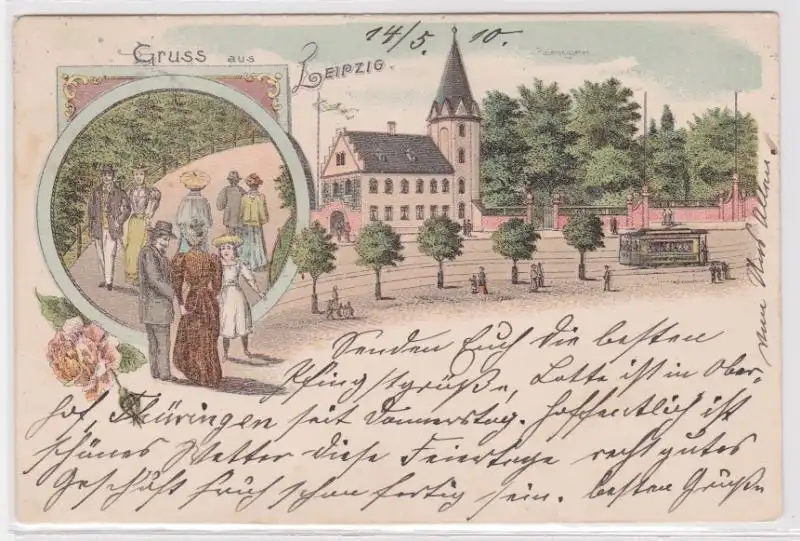 Gruss aus Leipzig.
14/5. 10.
Senden Euch die besten
Pfingstgrüße, Lotte ist in Ober-
hof, Thüringen seit Donnerstag. Hoffentlich ist
schönes Wetter diese Feiertage recht gutes
Geschäft früh schon fertig sein. besten Grüße